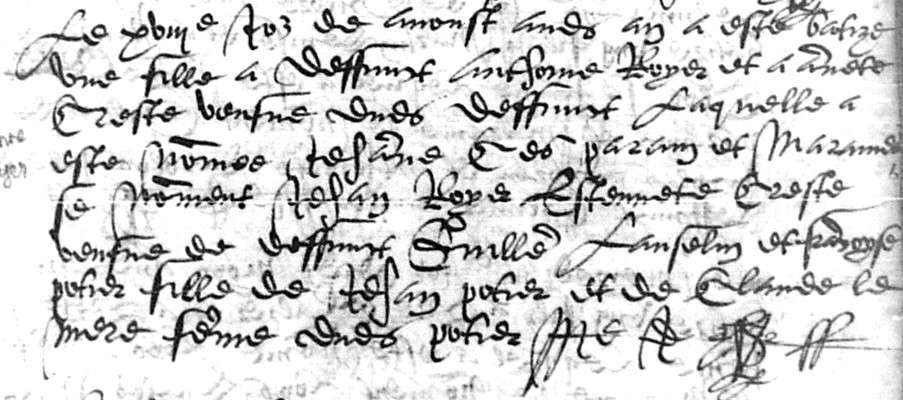 Le xviije Jor de aoust audt an a este batize
une fille a deffunct Anthoine Royer et a Anete
Creste veufue dudt deffunct Laquelle a
este nōmee Jehāne Ces parain et Maraines
se nōment Jehan Royer Estennete Creste
veufue de deffunct Guille Lanselin et frācoyse
potier fille de Jehan potier et de Claude le
mere fēme dudt potier